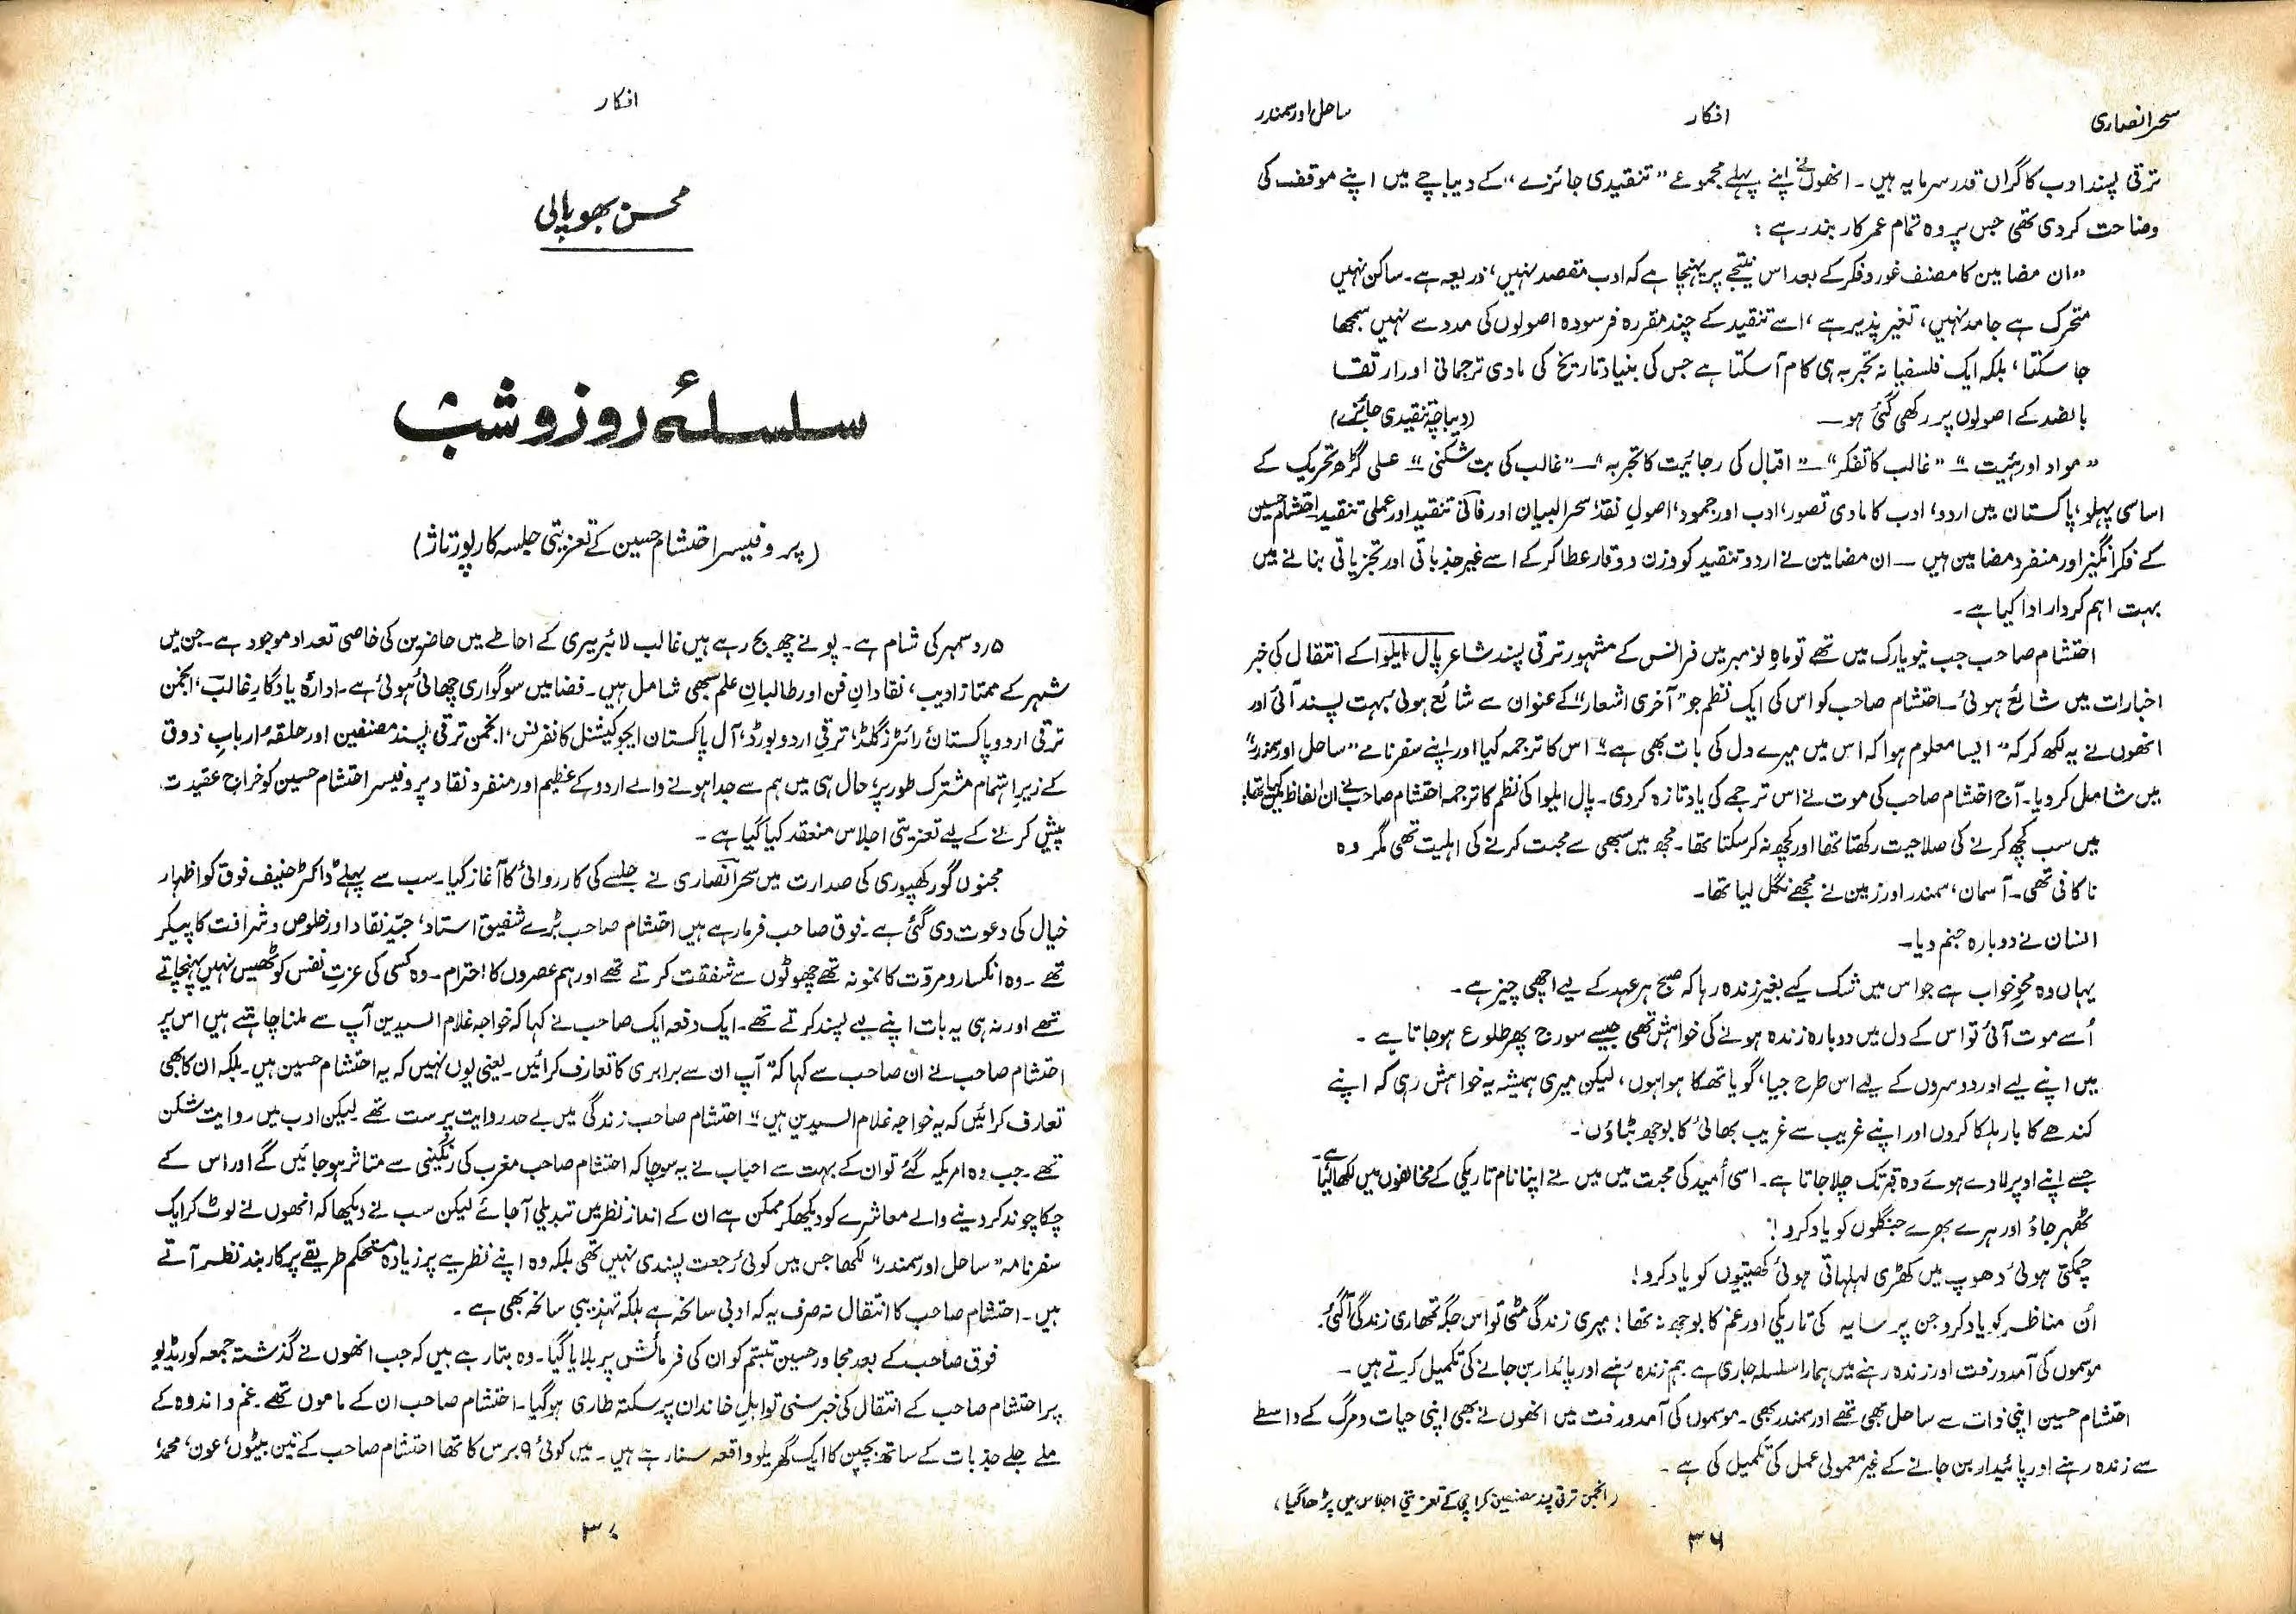 سحر انصاری
افکار
ساحل اور سمندر
ترقی پسند ادب کا گراں قدر سرمایہ ہیں ۔ انھوں نے اپنے پہلے مجموعے ”تنقیدی جائزے“ کے دیباچے میں اپنے موقف کی
وضاحت کردی تھی جس پر وہ تمام عمر کاربند رہے :
”ان مضامین کا مصنف غور و فکر کے بعد اس نتیجے پر پہنچا ہے کہ ادب مقصد نہیں، ذریعہ ہے ۔ ساکن نہیں
متحرک ہے جامد نہیں، تغیر پذیر ہے، اسے تنقید کے چند مقررہ فرسودہ اصولوں کی مدد سے نہیں سمجھا
جا سکتا، بلکہ ایک فلسفیانہ تجربہ ہی کام آسکتا ہے جس کی بنیاد تاریخ کی مادی ترجمانی اور ارتقا
بالضد کے اصولوں پر رکھی گئی ہو ــ (دیباچۂ تنقیدی جائزے)
”مواد اور ہئیت“ ــ ”غالب کا تفکر“ ــ ”اقبال کی رجائیت کا تجربہ“ ــ ”غالب کی بت شکنی“ ــ علی گڑھ تحریک کے
اساسی پہلو، پاکستان میں اردو، ادب کا مادی تصور، ادب اور جمود، اصولِ نقد، سحرالبیان اور فانی تنقید اور عملی تنقید احتشام حسین
کے فکر انگیز اور منفرد مضامین ہیں ــ ان مضامین نے اردو تنقید کو وزن و وقار عطا کرکے اسے غیر جذباتی اور تجزیاتی بنانے میں
بہت اہم کردار ادا کیا ہے ۔
احتشام صاحب جب نیویارک میں تھے تو ماہِ نومبر میں فرانس کے مشہور ترقی پسند شاعر پال ایلوا کے انتقال کی خبر
اخبارات میں شائع ہوئی ۔ احتشام صاحب کو اس کی ایک نظم جو ”آخری اشعار“ کے عنوان سے شائع ہوئی بہت پسند آئی اور
انھوں نے یہ لکھ کر کہ ”ایسا معلوم ہوا کہ اس میں میرے دل کی بات بھی ہے“ اس کا ترجمہ کیا اور اپنے سفرنامے ”ساحل اور سمندر“
میں شامل کردیا ۔ آج احتشام صاحب کی موت نے اس ترجمے کی یاد تازہ کردی ۔ پال ایلوا کی نظم کا ترجمہ احتشام صاحب نے ان الفاظ میں کیا تھا:
میں سب کچھ کرنے کی صلاحیت رکھتا تھا اور کچھ نہ کرسکتا تھا ۔ مجھ میں سبھی سے محبت کرنے کی اہلیت تھی مگر وہ
ناکافی تھی ۔ آسمان، سمندر اور زمین نے مجھے نگل لیا تھا ۔
انسان نے دوبارہ جنم دیا ۔
یہاں وہ محوِ خواب ہے جو اس میں شک کیے بغیر زندہ رہا کہ صبح ہر عہد کے لیے اچھی چیز ہے ۔
اُسے موت آئی تو اس کے دل میں دوبارہ زندہ ہونے کی خواہش تھی جیسے سورج پھر طلوع ہوجاتا ہے ۔
میں اپنے لیے اور دوسروں کے لیے اس طرح جیا، گویا تھکا ہوا ہوں، لیکن میری ہمیشہ یہ خواہش رہی کہ اپنے
کندھے کا بار ہلکا کروں اور اپنے غریب سے غریب بھائی کا بوجھ بٹاؤں ۔
جسے اپنے اوپر لادے ہوئے وہ قبر تک چلا جاتا ہے ۔ اسی اُمید کی محبت میں میں نے اپنا نام تاریکی کے مخالفوں میں لکھا لیا ہے ۔
ٹھہر جاؤ اور ہرے بھرے جنگلوں کو یاد کرو !
چمکتی ہوئی دھوپ میں کھڑی لہلہاتی ہوئی کھیتیوں کو یاد کرو !
اُن مناظر کو یاد کرو جن پر سایہ کی تاریکی اور غم کا بوجھ نہ تھا ! میری زندگی مٹی تو اس جگہ تمھاری زندگی آگئی ۔
موسموں کی آمد و رفت اور زندہ رہنے میں ہمارا سلسلہ جاری ہے ۔ ہم زندہ رہنے اور پائدار بن جانے کی تکمیل کرتے ہیں ۔
احتشام حسین اپنی ذات سے ساحل بھی تھے اور سمندر بھی ۔ موسموں کی آمد و رفت میں انھوں نے بھی اپنی حیات و مرگ کے واسطے
سے زندہ رہنے اور پائیدار بن جانے کے غیر معمولی عمل کی تکمیل کی ہے ۔
(انجمن ترقی پسند مصنفین کراچی کے تعزیتی اجلاس میں پڑھا گیا)
۳۶
افکار
محسن بھوپالی
سلسلۂ روز و شب
(پروفیسر احتشام حسین کے تعزیتی جلسہ کا رپورتاژ)
۵ر دسمبر کی شام ہے ۔ پونے چھ بج رہے ہیں غالب لائبریری کے احاطے میں حاضرین کی خاصی تعداد موجود ہے ۔ جن میں
شہر کے ممتاز ادیب، نقادانِ فن اور طالبانِ علم سبھی شامل ہیں ۔ فضا میں سوگواری چھائی ہوئی ہے ۔ ادارۂ یادگارِ غالب، انجمن
ترقی اردو پاکستان، رائٹرز گلڈ، ترقی اردو بورڈ، آل پاکستان ایجوکیشنل کانفرنس، انجمن ترقی پسند مصنفین اور حلقۂ اربابِ ذوق
کے زیرِ اہتمام مشترک طور پر، حال ہی میں ہم سے جدا ہونے والے اردو کے عظیم اور منفرد نقاد پروفیسر احتشام حسین کو خراجِ عقیدت
پیش کرنے کے لیے تعزیتی اجلاس منعقد کیا گیا ہے ۔
مجنوں گورکھپوری کی صدارت میں سحر انصاری نے جلسے کی کارروائی کا آغاز کیا ۔ سب سے پہلے ڈاکٹر حنیف فوق کو اظہارِ
خیال کی دعوت دی گئی ہے ۔ فوق صاحب فرما رہے ہیں احتشام صاحب بڑے شفیق استاد، جیّد نقاد اور خلوص و شرافت کا پیکر
تھے ۔ وہ انکسار و مروّت کا نمونہ تھے چھوٹوں سے شفقت کرتے تھے اور ہم عصروں کا احترام ۔ وہ کسی کی عزتِ نفس کو ٹھیس نہیں پہنچاتے
تھے اور نہ ہی یہ بات اپنے لیے پسند کرتے تھے ۔ ایک دفعہ ایک صاحب نے کہا کہ خواجہ غلام السیدین آپ سے ملنا چاہتے ہیں اس پر
احتشام صاحب نے ان صاحب سے کہا کہ ”آپ ان سے برابری کا تعارف کرائیں ۔ یعنی یوں نہیں کہ یہ احتشام حسین ہیں ۔ بلکہ ان کا بھی
تعارف کرائیں کہ یہ خواجہ غلام السیدین ہیں“ احتشام صاحب زندگی میں بے حد روایت پرست تھے لیکن ادب میں روایت شکن
تھے ۔ جب وہ امریکہ گئے تو ان کے بہت سے احباب نے یہ سوچا کہ احتشام صاحب مغرب کی رنگینی سے متاثر ہوجائیں گے اور اس کے
چکا چوند کردینے والے معاشرے کو دیکھ کر ممکن ہے ان کے اندازِ نظر میں تبدیلی آجائے لیکن سب نے دیکھا کہ انھوں نے لوٹ کر ایک
سفرنامہ ”ساحل اور سمندر“ لکھا جس میں کوئی رجعت پسندی نہیں تھی بلکہ وہ اپنے نظریے پر زیادہ مستحکم طریقے پر کاربند نظر آتے
ہیں ۔ احتشام صاحب کا انتقال نہ صرف یہ کہ ادبی سانحہ ہے بلکہ تہذیبی سانحہ بھی ہے ۔
فوق صاحب کے بعد مجاور حسین تبسّم کو ان کی فرمائش پر بلایا گیا ۔ وہ بتا رہے ہیں کہ جب انھوں نے گذشتہ جمعہ کو ریڈیو
پر احتشام صاحب کے انتقال کی خبر سنی تو اہلِ خاندان پر سکتہ طاری ہوگیا ۔ احتشام صاحب ان کے ماموں تھے ۔ غم و اندوہ کے
ملے جلے جذبات کے ساتھ بچپن کا ایک گھریلو واقعہ سنا رہے ہیں ۔ میں کوئی ۹ برس کا تھا احتشام صاحب کے تین بیٹوں، عون، محمد،